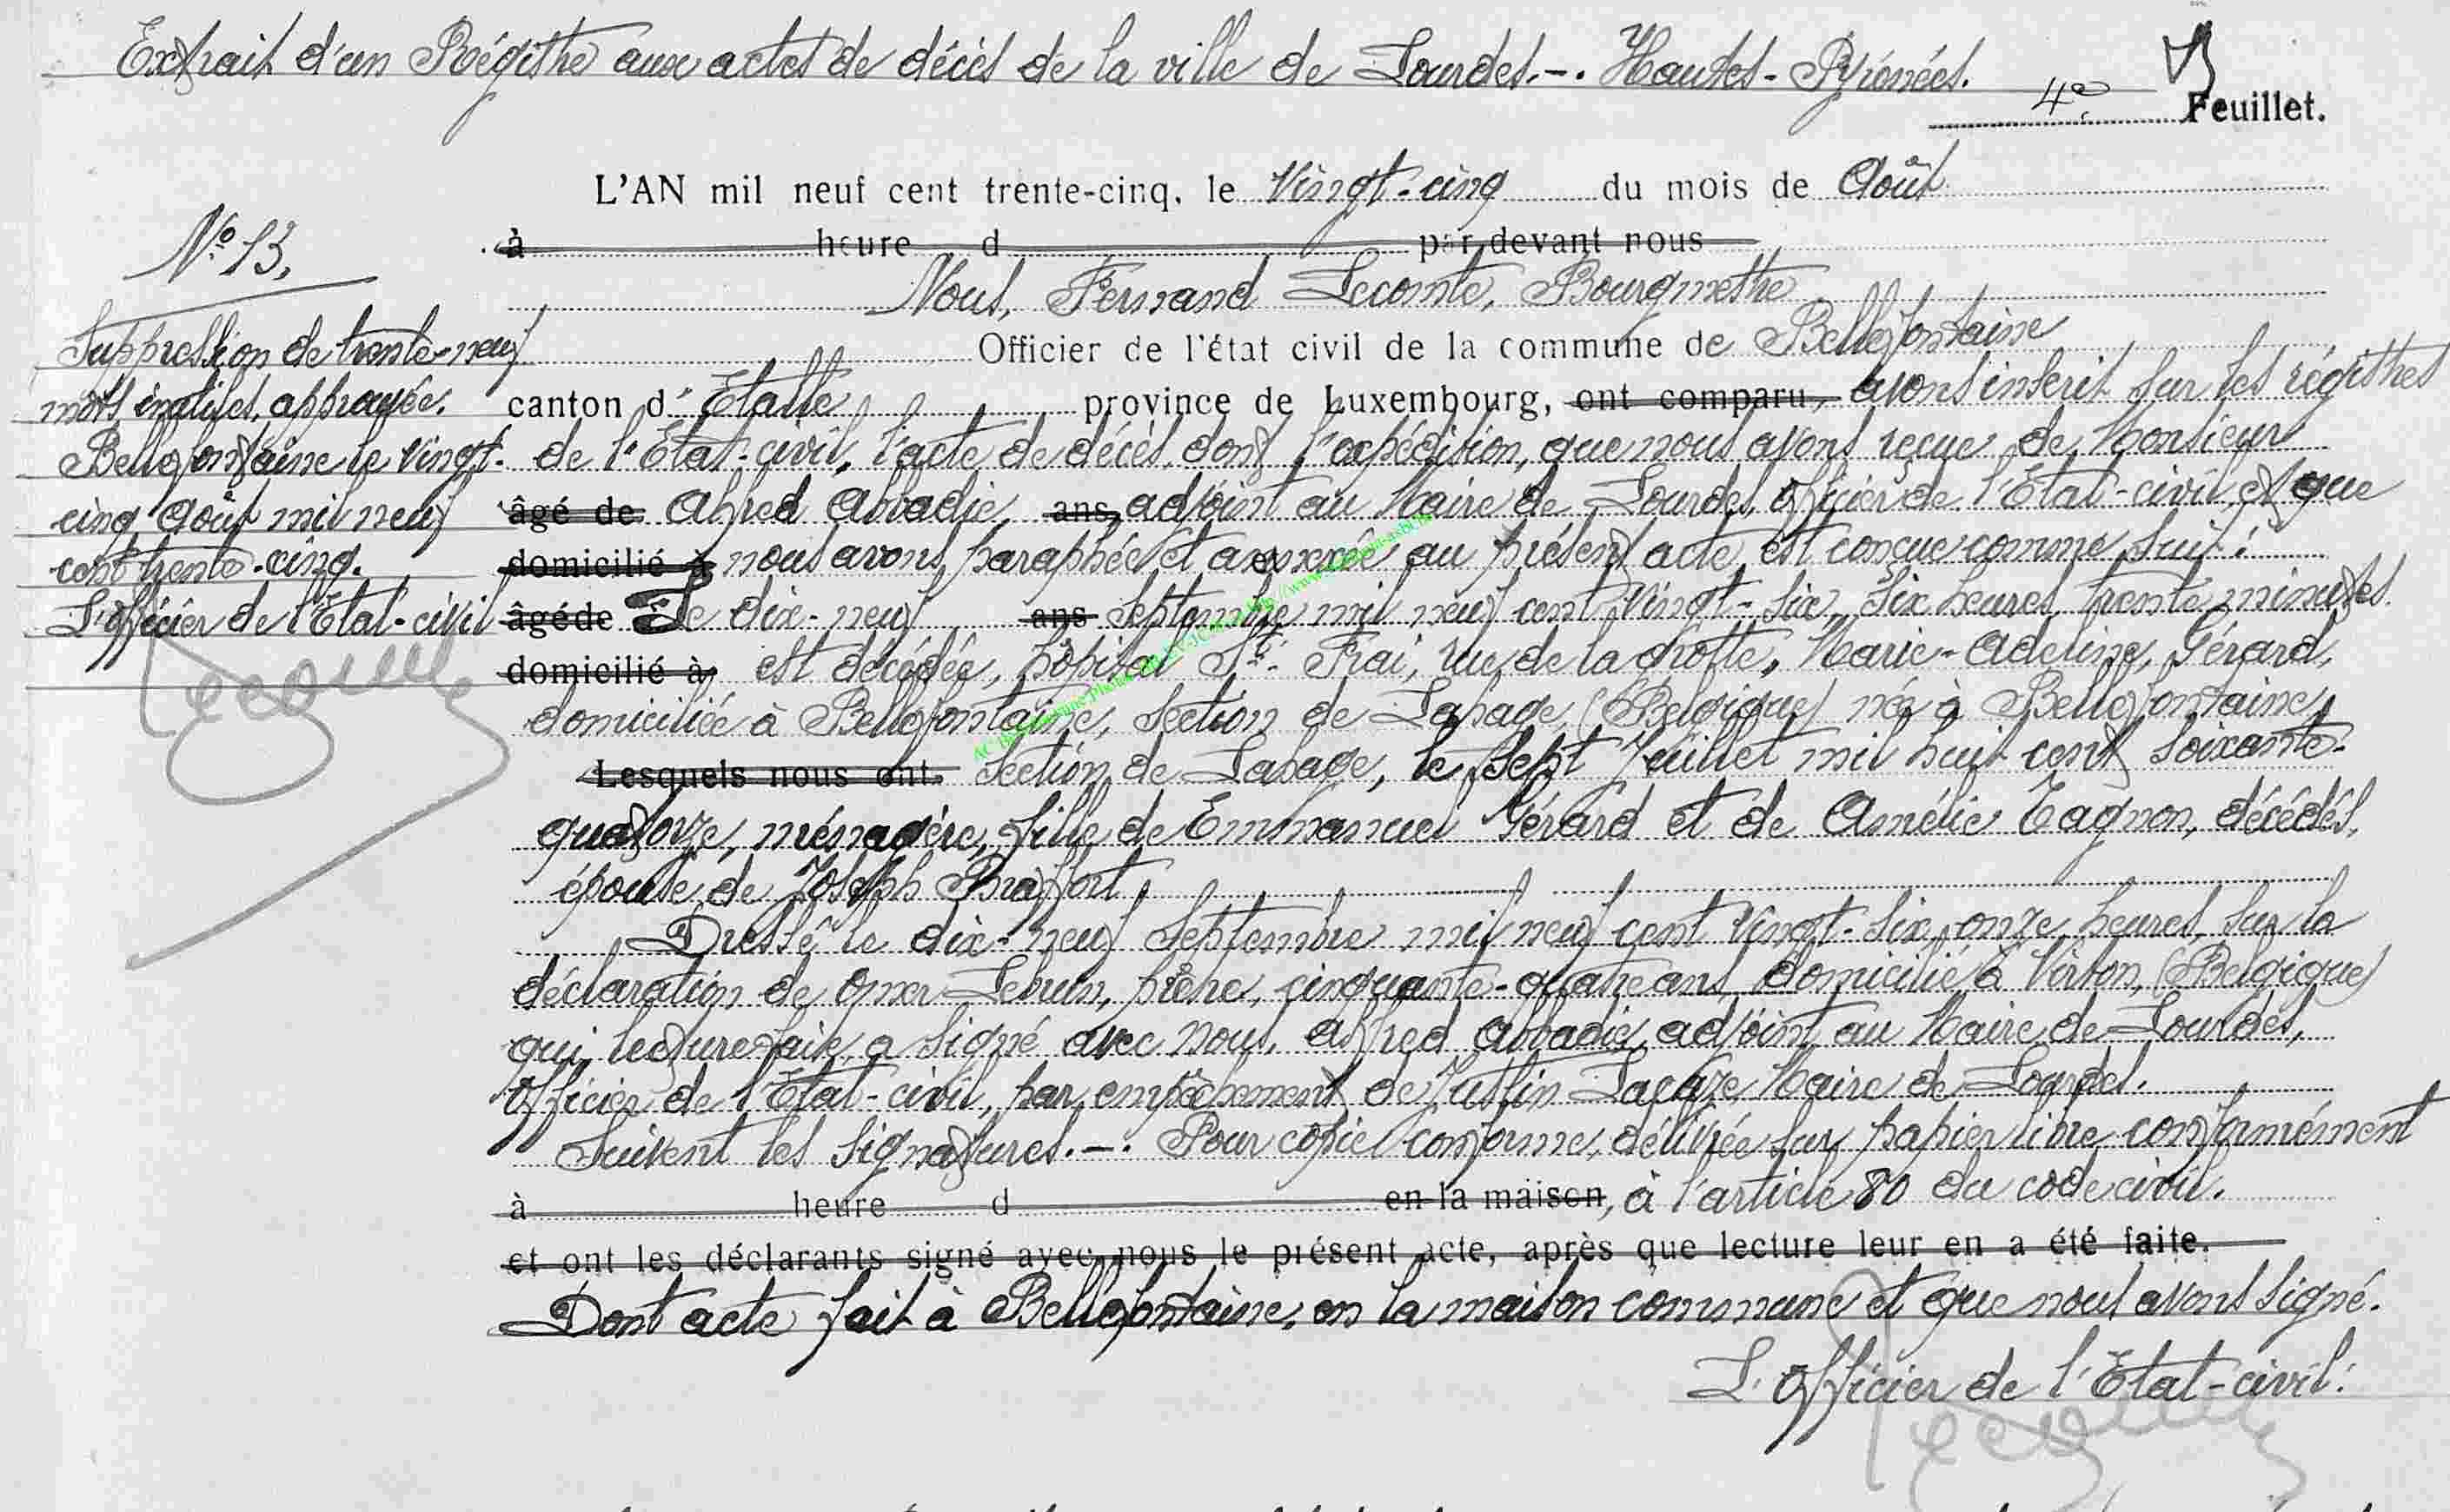 Extrait d'un Régistre aux actes de décès de la ville de Lourdes.-. Hautes-Pyrénées.
4e Feuillet.
L'AN mil neuf cent trente-cinq, le Vingt-cinq du mois de Août
à heure d par devant nous
N° 13.
Nous, Fernand Lecomte, Bourgmestre
Officier de l'état civil de la commune de Bellefontaine
canton d' Etalle province de Luxembourg, ont comparu, avons inscrit sur les régistres
de l'Etat-civil, l'acte de décès dont l'expédition, que nous avons reçue de Monsieur
âgé de Alfred Abbadie, ans, adjoint au Maire de Lourdes, officier de l'Etat-civil, et que
domicilié à nous avons paraphée et annexée au présent acte, est conçue comme suit:
âgé de Le dix-neuf ans Septembre mil neuf cent vingt-six, six heures trente minutes
domicilié à est décédée, hôpital St. Frai, rue de la Grotte, Marie-Adeline, Gérard,
domiciliée à Bellefontaine, section de Lahage, (Belgique) née à Bellefontaine,
Lesquels nous ont section de Lahage, le sept Juillet mil huit cent soixante-
quatorze, ménagère, fille de Emmanuel Gérard et de Amélie Tagnon, décédés,
épouse de Joseph Braffort.
Dressé le dix-neuf Septembre mil neuf cent vingt-six, onze heures, sur la
déclaration de Omer Lebrun, prêtre, cinquante-quatre ans, domicilié à Virton, (Belgique)
qui, lecture faite, a signé avec Nous, Alfred Abbadie, adjoint au Maire de Lourdes,
Officier de l'Etat-civil, par empêchement de Justin Lacaze, Maire de Lourdes.
Suivent les signatures.-. Pour copie conforme, délivrée sur papier libre conformément
à heure d en la maison, à l'article 80 du code civil.
et ont les déclarants signé avec nous le présent acte, après que lecture leur en a été faite.
Dont acte fait à Bellefontaine, en la maison commune et que nous avons signé.
L'Officier de l'Etat-civil:
Lecomte
Suppression de trente-neuf
mots inutiles, approuvée.
Bellefontaine le Vingt-
cinq Août mil neuf
cent trente-cinq.
L'officier de l'Etat-civil
Lecomte